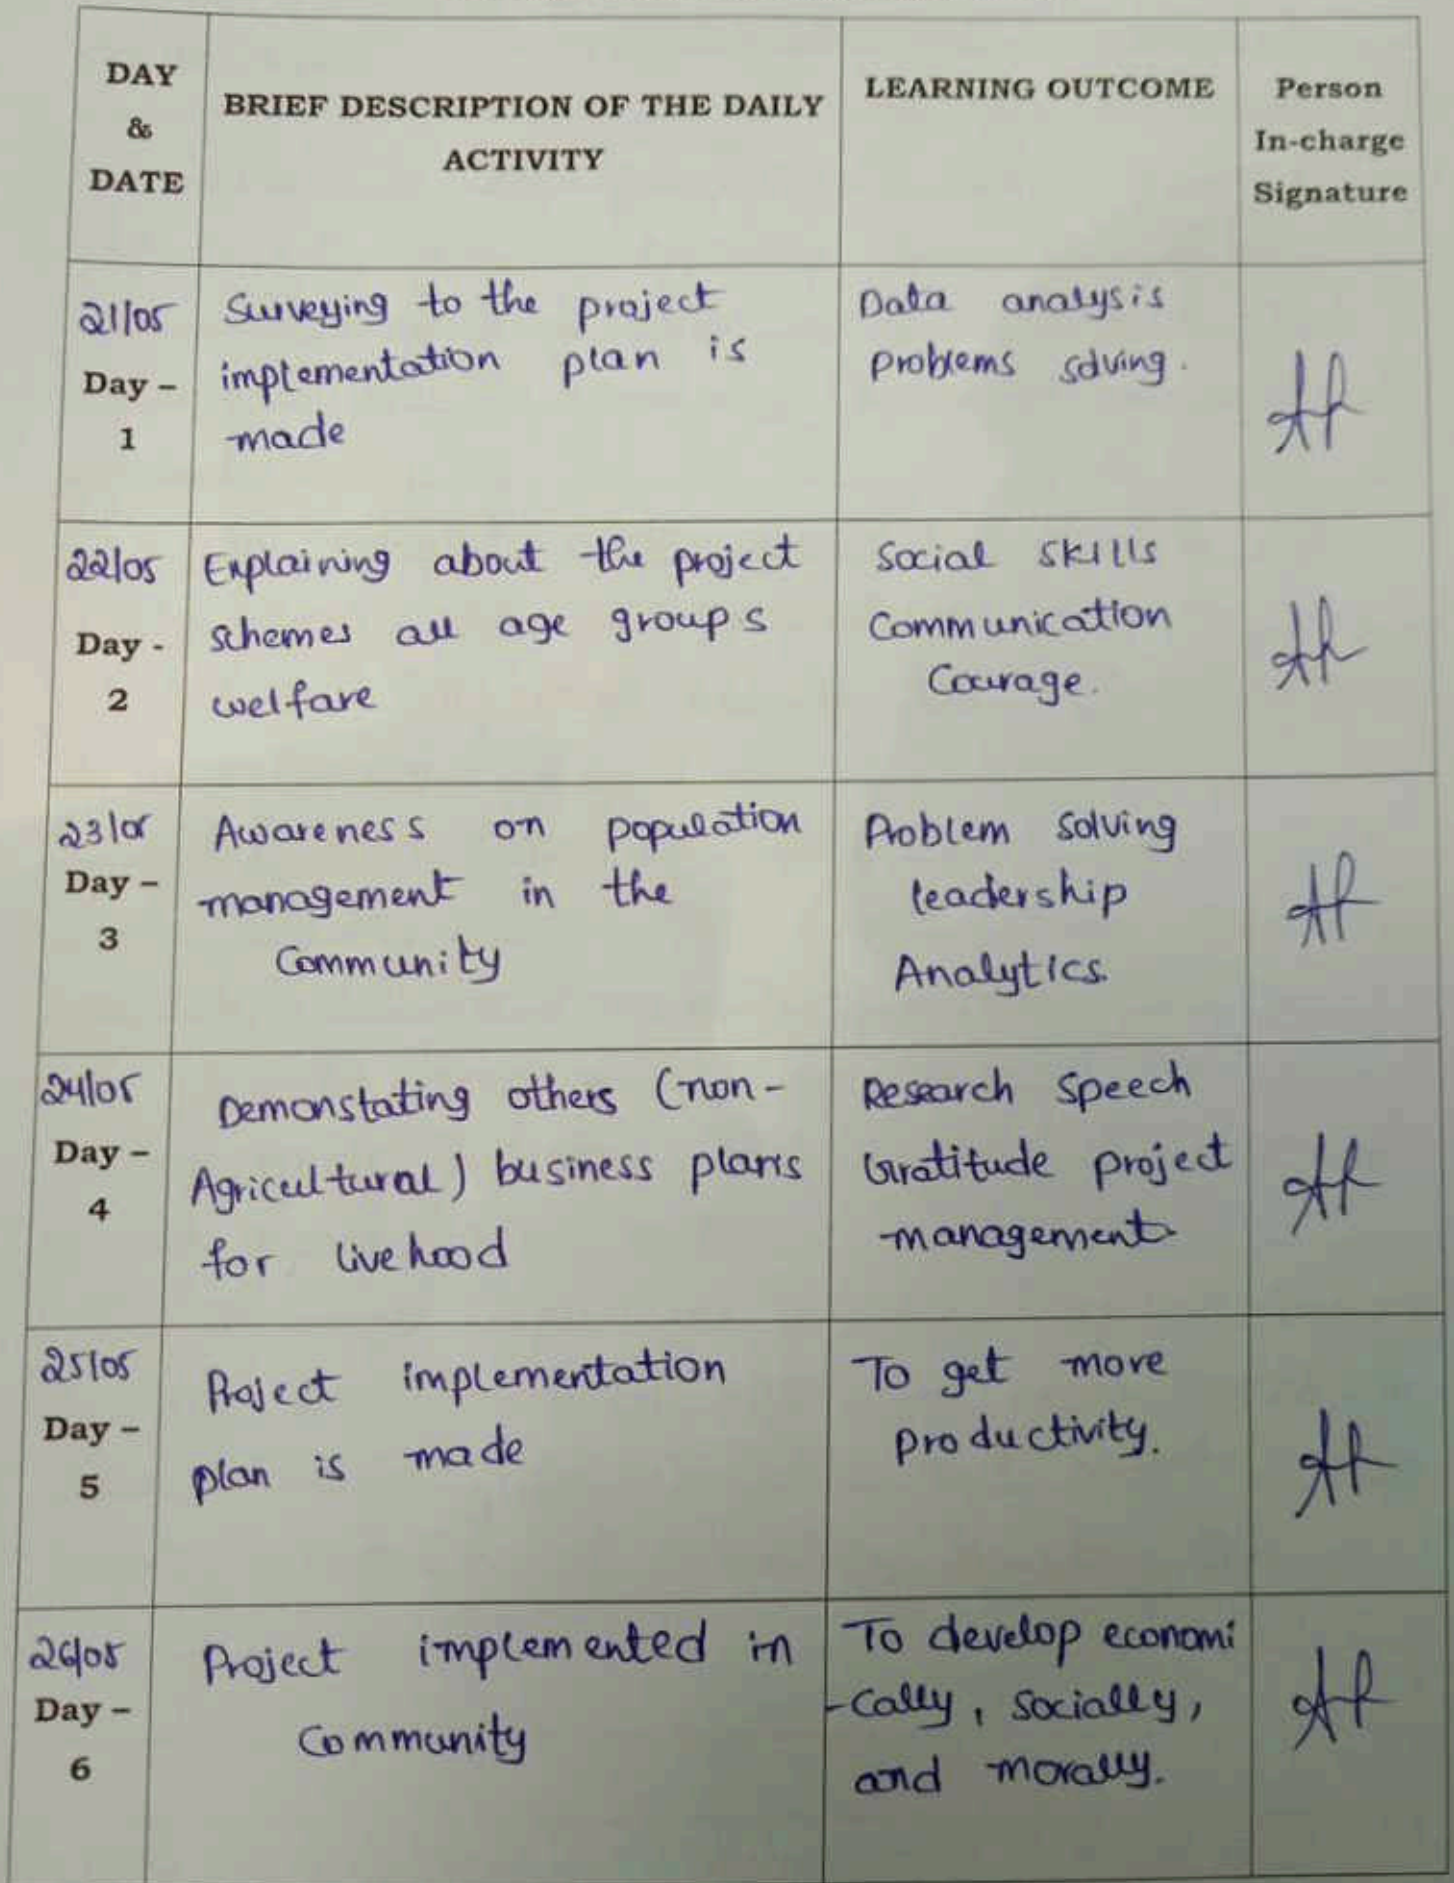 DAY
&
DATE
BRIEF DESCRIPTION OF THE DAILY
ACTIVITY
LEARNING OUTCOME
Person
In-charge
Signature
21/05
Day –
1
Surveying to the project
implementation plan is
made
Data analysis
problems solving.
22/05
Day -
2
Explaining about the project
schemes all age groups
welfare
Social skills
Communication
Courage.
23/05
Day –
3
Awareness on population
management in the
Community
Problem solving
leadership
Analytics.
24/05
Day –
4
Demonstating others (non-
Agricultural) business plans
for livehood
Research Speech
Gratitude project
management
25/05
Day –
5
Project implementation
plan is made
To get more
productivity.
26/05
Day –
6
Project implemented in
Community
To develop economi
-cally, socially,
and morally.